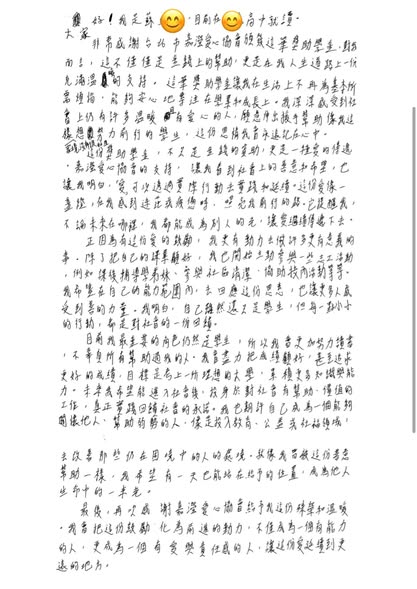 大家好！我是蘇，目前在高中就讀。
非常感謝台北市嘉澄愛心協會頒發這筆獎助學金，對我
而言，這不僅僅是金錢上的幫助，更是在我人生道路上一份
充滿溫暖的支持。這筆獎助學金讓我在生活上不再為基本所
需煩惱，能夠安心地專注在學業和成長上。我深深感受到社
會上仍有許多溫暖有愛心的人，願意伸出援手幫助像我這
樣想努力前行的學生，這份恩情我會永遠記在心中。
這份獎助學金，不只是金錢的幫助，更是一種愛的傳遞，
嘉澄愛心協會的支持，讓我看到社會上的善意和希望，也
讓我明白，愛可以透過實際行動去實踐和延續。這份愛像一
盞燈，在我感到迷茫或疲憊時，照亮我前行的路。它提醒我，
不論未來在哪裡，我都能成為別人的光，讓愛繼續傳遞下去。
正因為有這份愛的鼓勵，我更有動力去做許多更有意義的
事。除了把自己的課業顧好，我也開始主動參與一些志工活動，
例如課後輔導學弟妹、參與社區清潔、協助校內活動等等。
我希望在自己的能力範圍內，去回應這份恩惠，也讓更多人感
受到善的力量。我明白，自己雖然還只是學生，但每一點小小
的行動，都是對社會的一份回饋。
目前我最主要的角色仍然是學生，所以我會更加努力讀書，
不辜負所有幫助過我的人。我會盡力把成績顧好，甚至追求
更好的成績，目標是考上一所理想的大學，累積更多知識與能
力。未來我希望能進入社會後，投身於對社會有幫助、有價值的
工作，真正實踐回饋社會的承諾。我也期許自己成為一個能夠
關懷他人、幫助弱勢的人，像是投入教育、公益或社福領域，
去改善那些仍在困境中的人的處境。就像我曾被這份善意
幫助一樣，我希望有一天也能站在給予的位置，成為他人
生命中的一束光。
最後，再次感謝嘉澄愛心協會給予我這份榮譽和溫暖。
我會把這份鼓勵化為前進的動力，不僅成為一個有能力
的人，更成為一個有愛與責任感的人，讓這份愛延續到更
遠的地方。